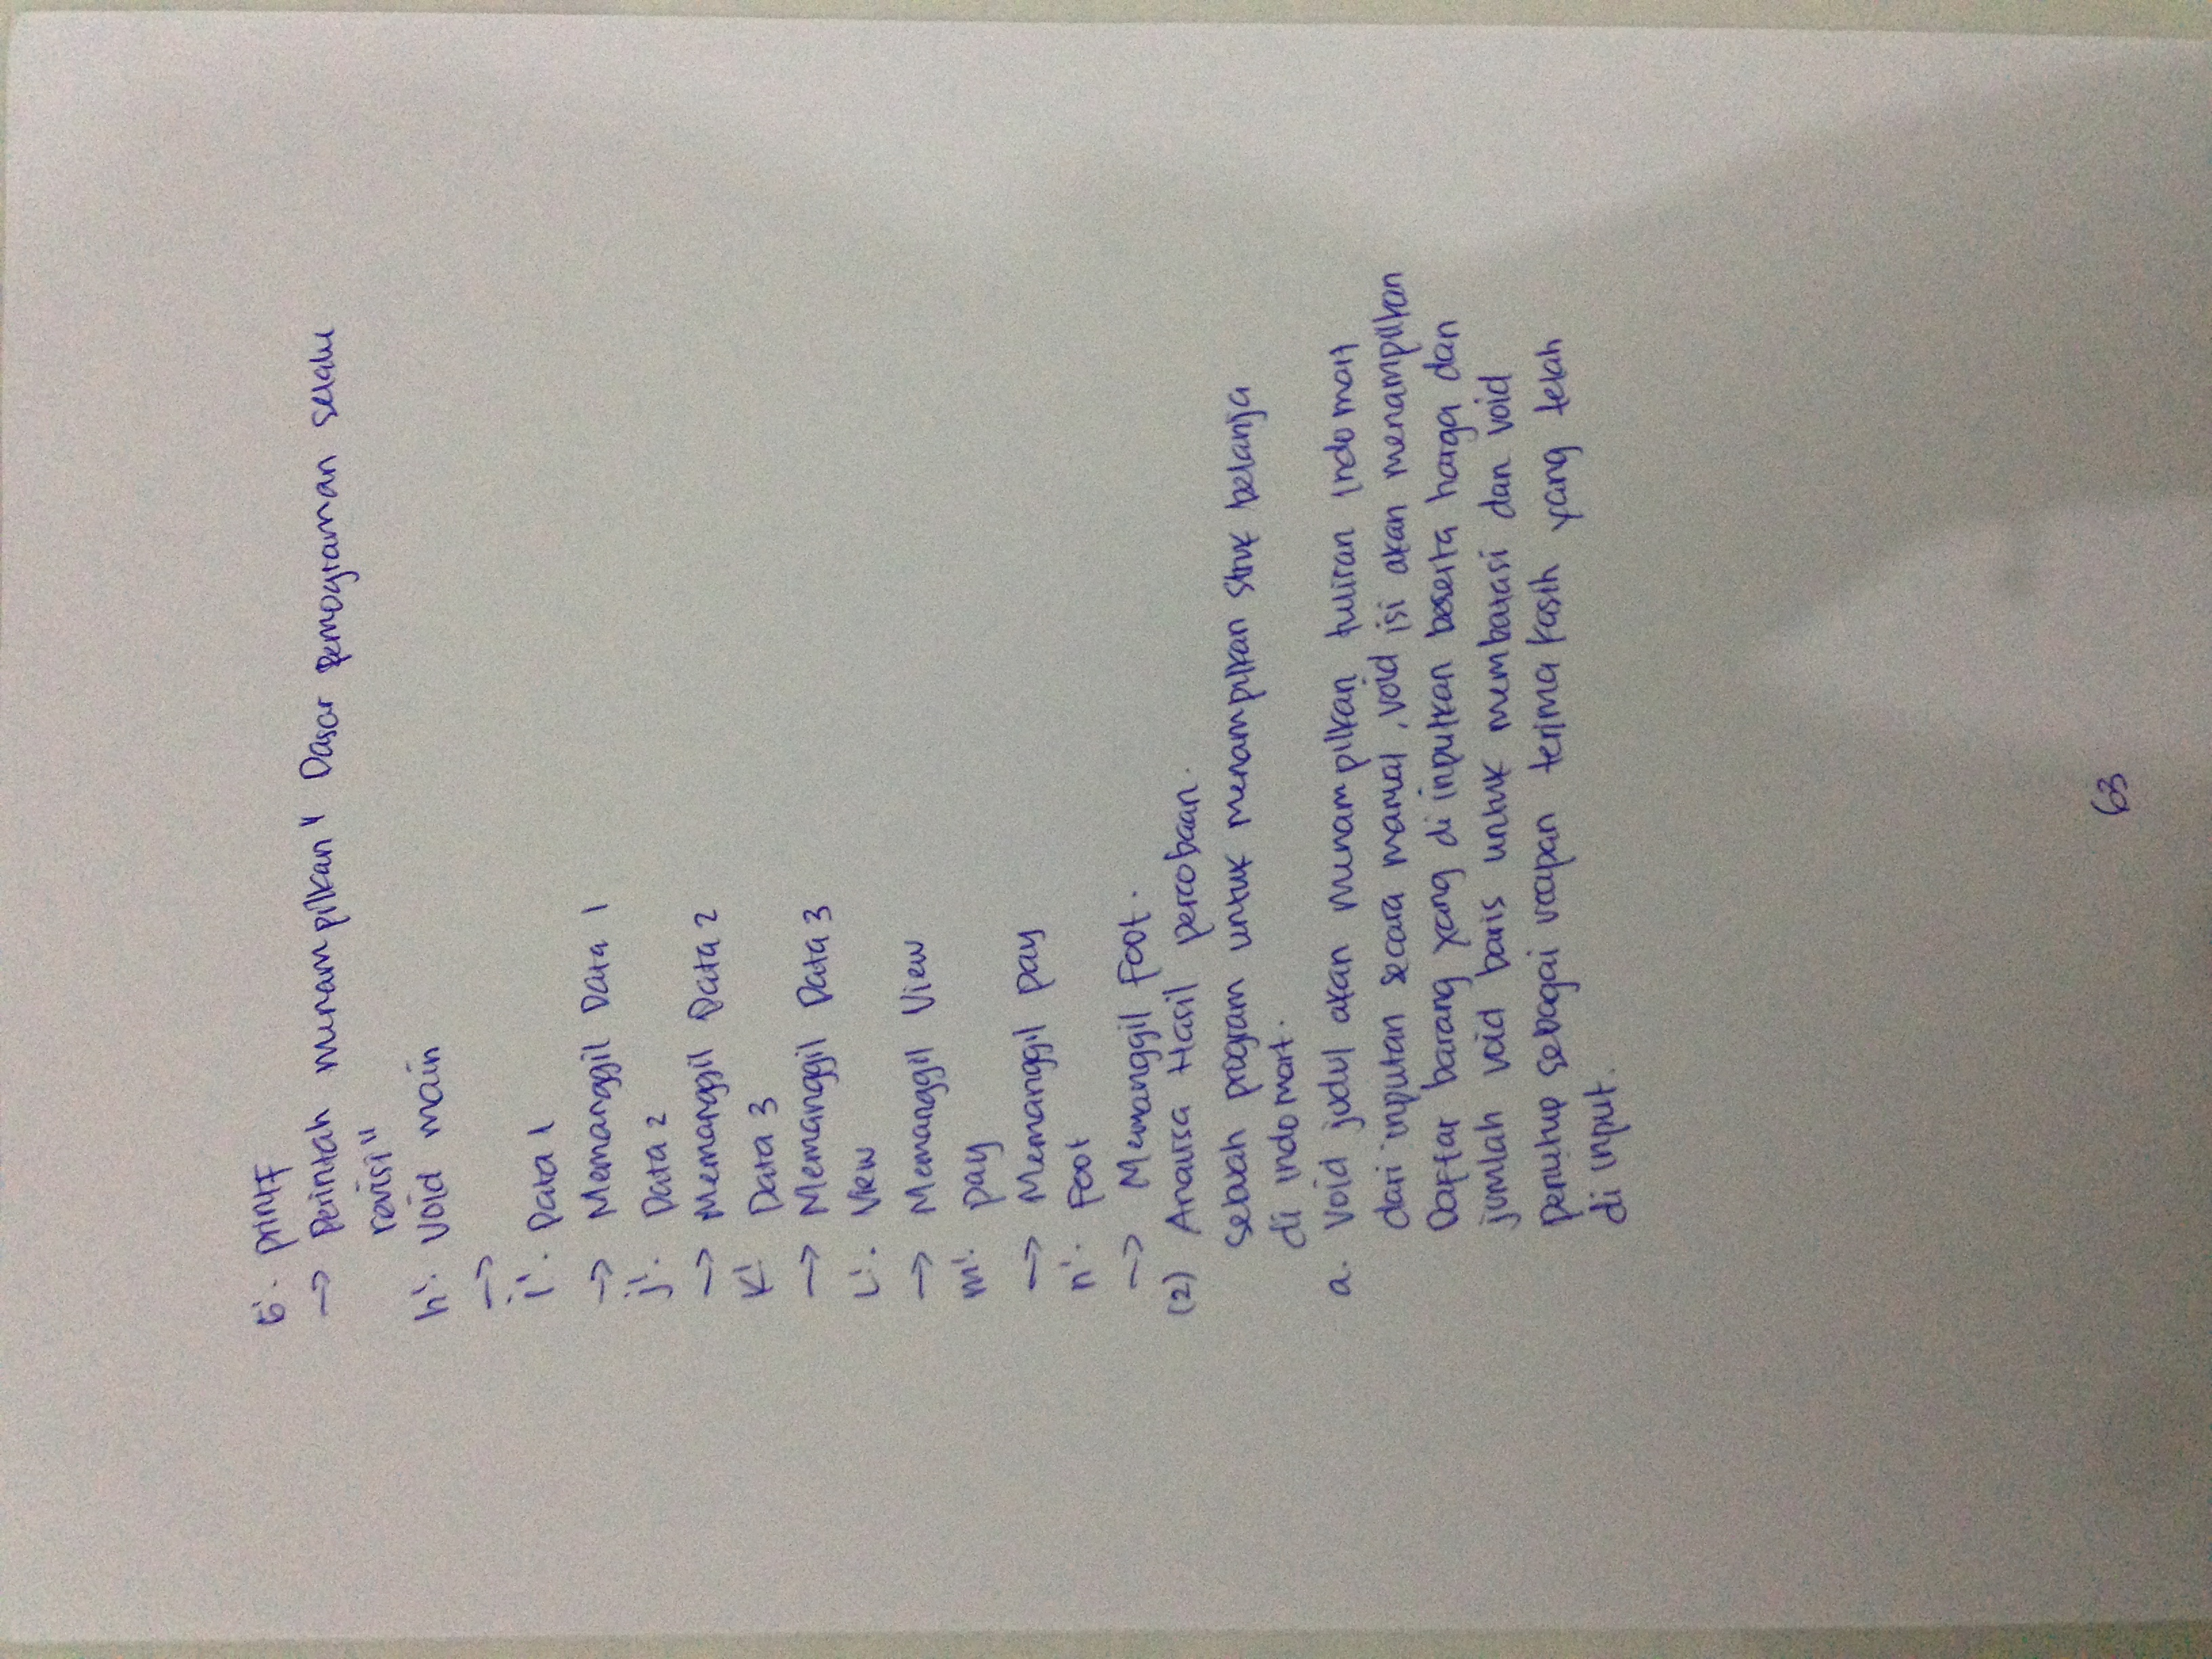 G'. printf
→ Perintah menampilkan " Dasar pemograman selalu
revisi"
h'. Void main
→
i'. Data 1
→ Memanggil Data 1
j'. Data 2
→ Memanggil Data 2
K'. Data 3
→ Memanggil Data 3
L'. View
→ Memanggil View
m'. pay
→ Memanggil pay
n'. Foot
→ Memanggil Foot.
(2) Analisa Hasil percobaan.
sebuah program untuk menampilkan struk belanja
di indomart.
a. Void judul akan menampilkan tulisan indomart
dari inputan secara manual, void isi akan menampilkan
Daftar barang yang di inputkan beserta harga dan
jumlah void baris untuk membatasi dan void
penutup sebagai ucapan terima kasih yang telah
di input.
63